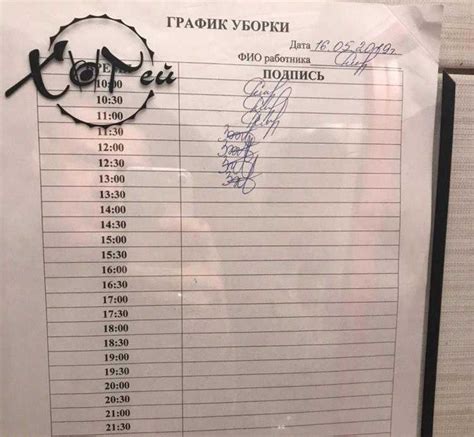 ГРАФИК УБОРКИ
Дата 16.05.2019г
ФИО работника
ХоГей
ВРЕМЯ ПОДПИСЬ
10:00
10:30
11:00
11:30
12:00
12:30
13:00
13:30
14:00
14:30
15:00
15:30
16:00
16:30
17:00
17:30
18:00
18:30
19:00
19:30
20:00
20:30
21:00
21:30